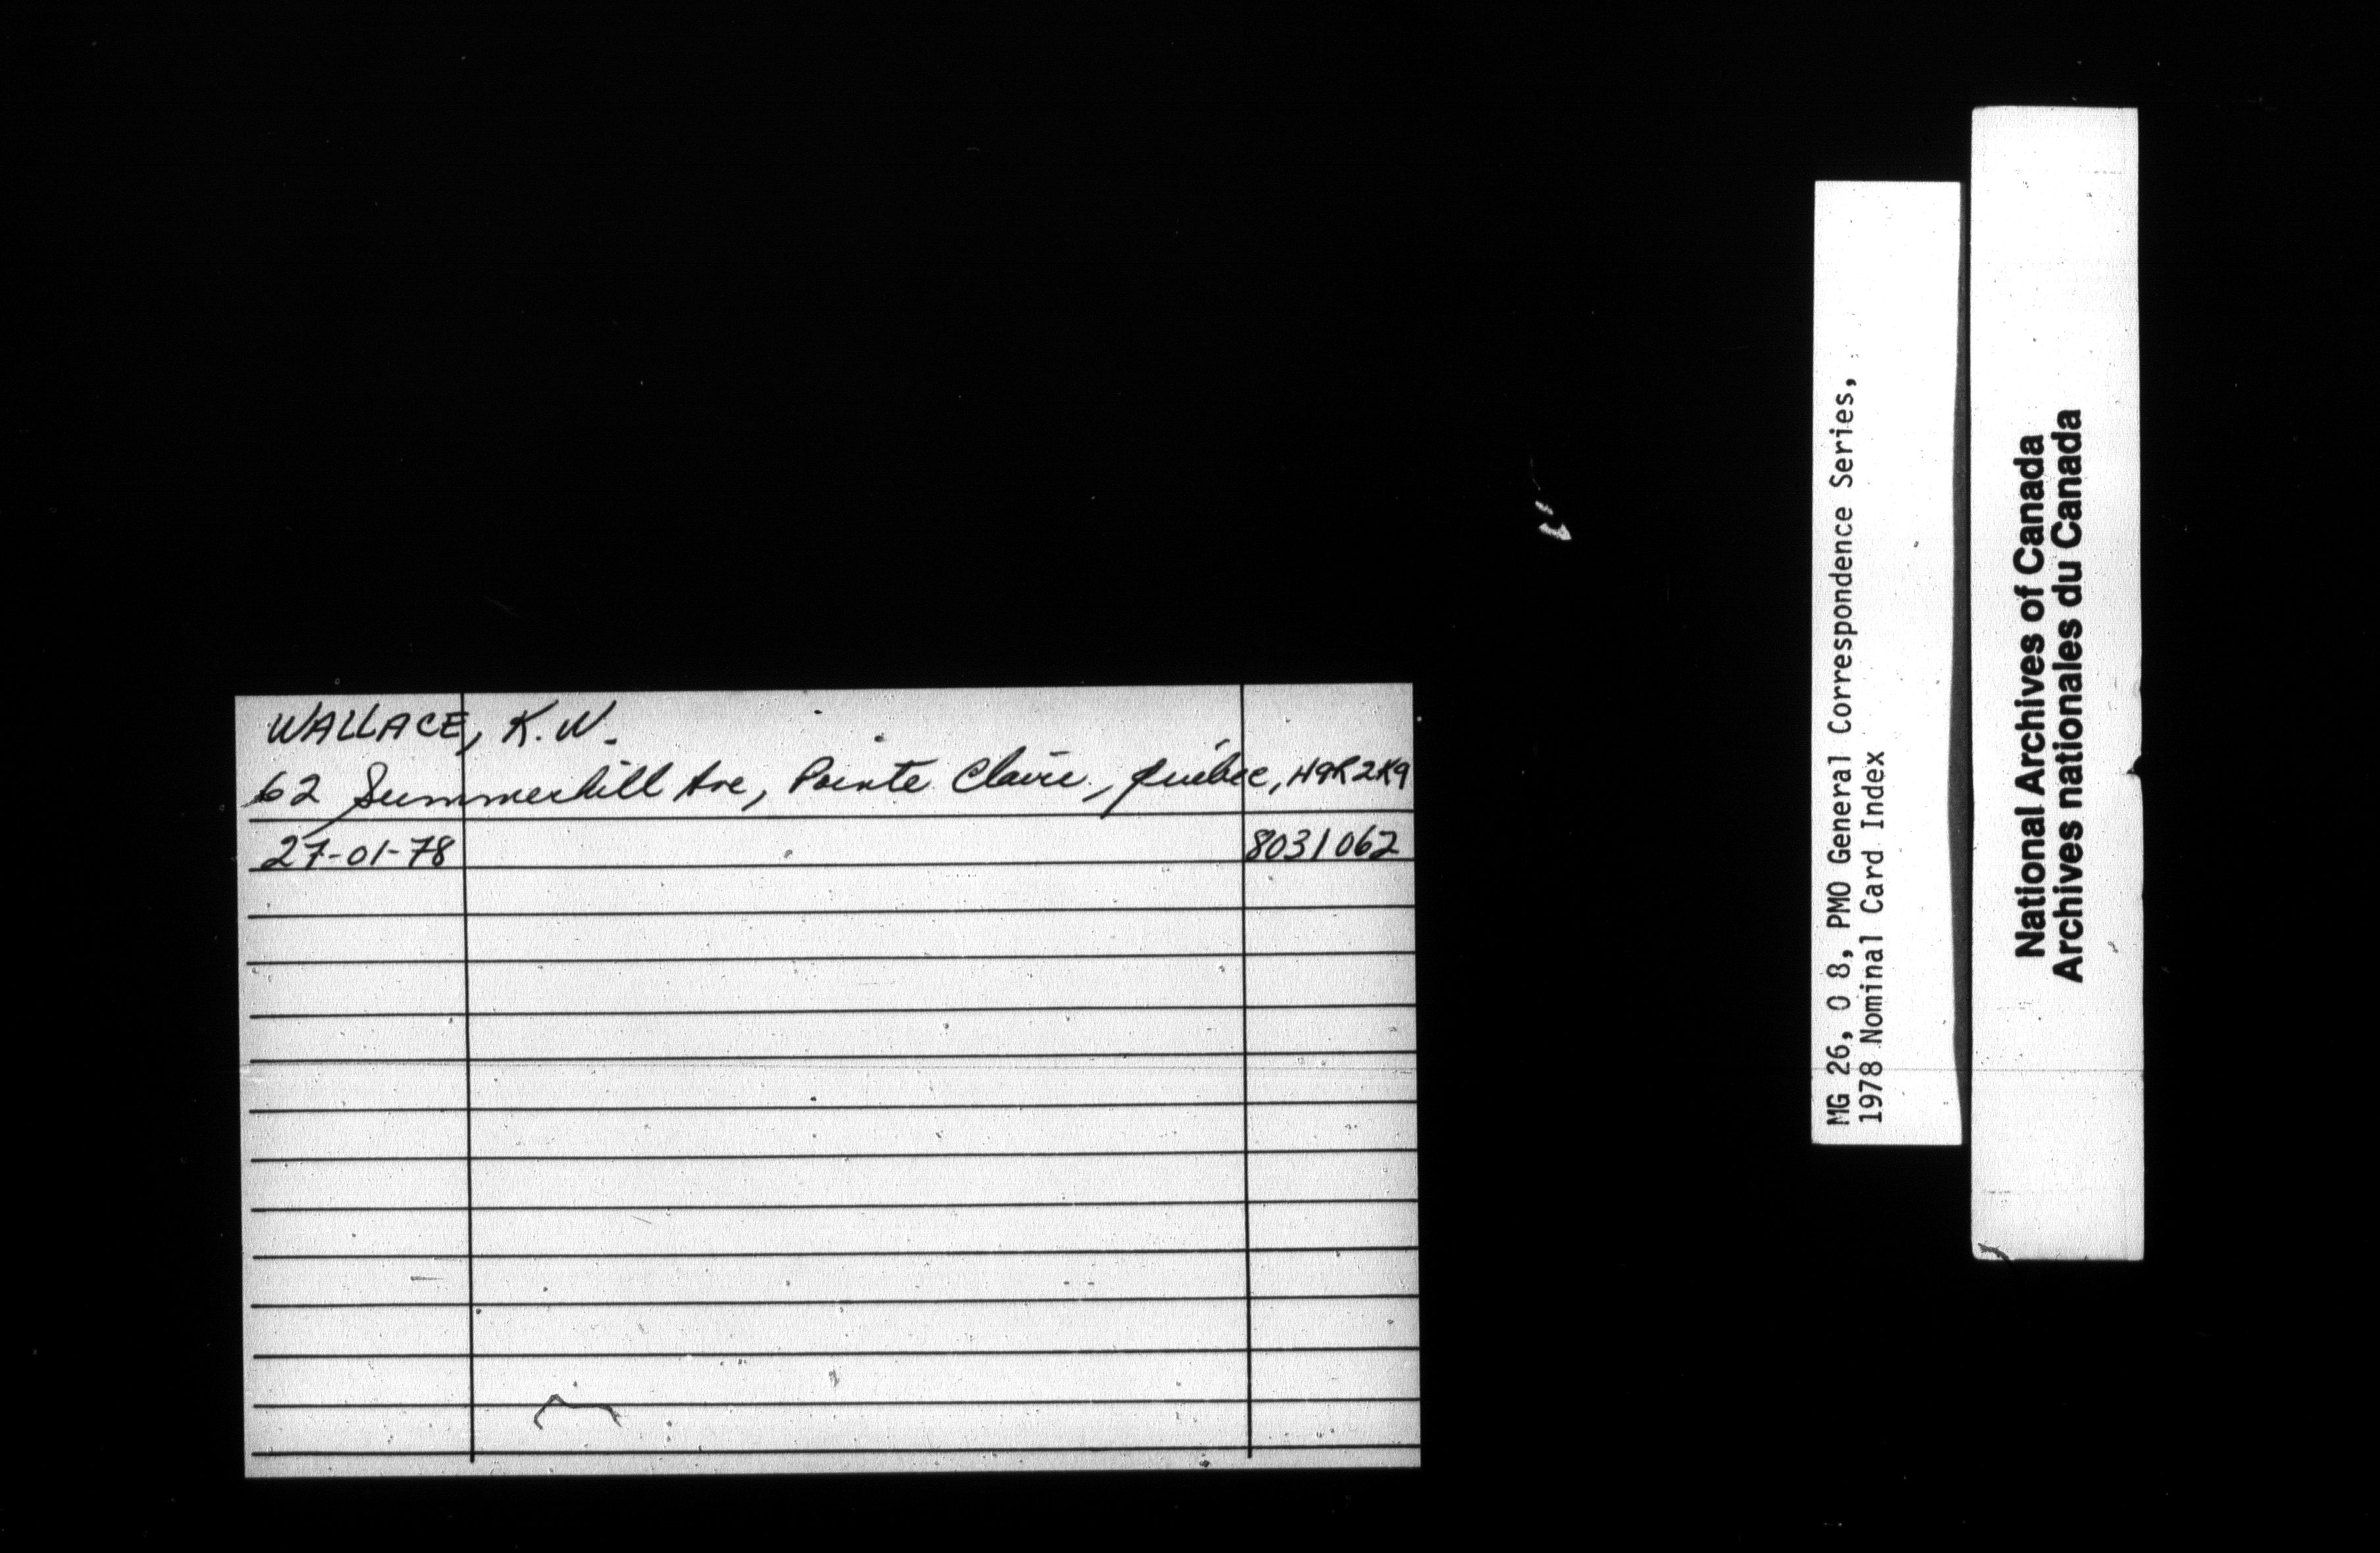 WALLACE, K.W.
62 Summerhill Ave, Pointe Claire, Québec, H9R2K9
27-01-78 8031062
MG 26, O 8, PMO General Correspondence Series,
1978 Nominal Card Index
National Archives of Canada
Archives nationales du Canada